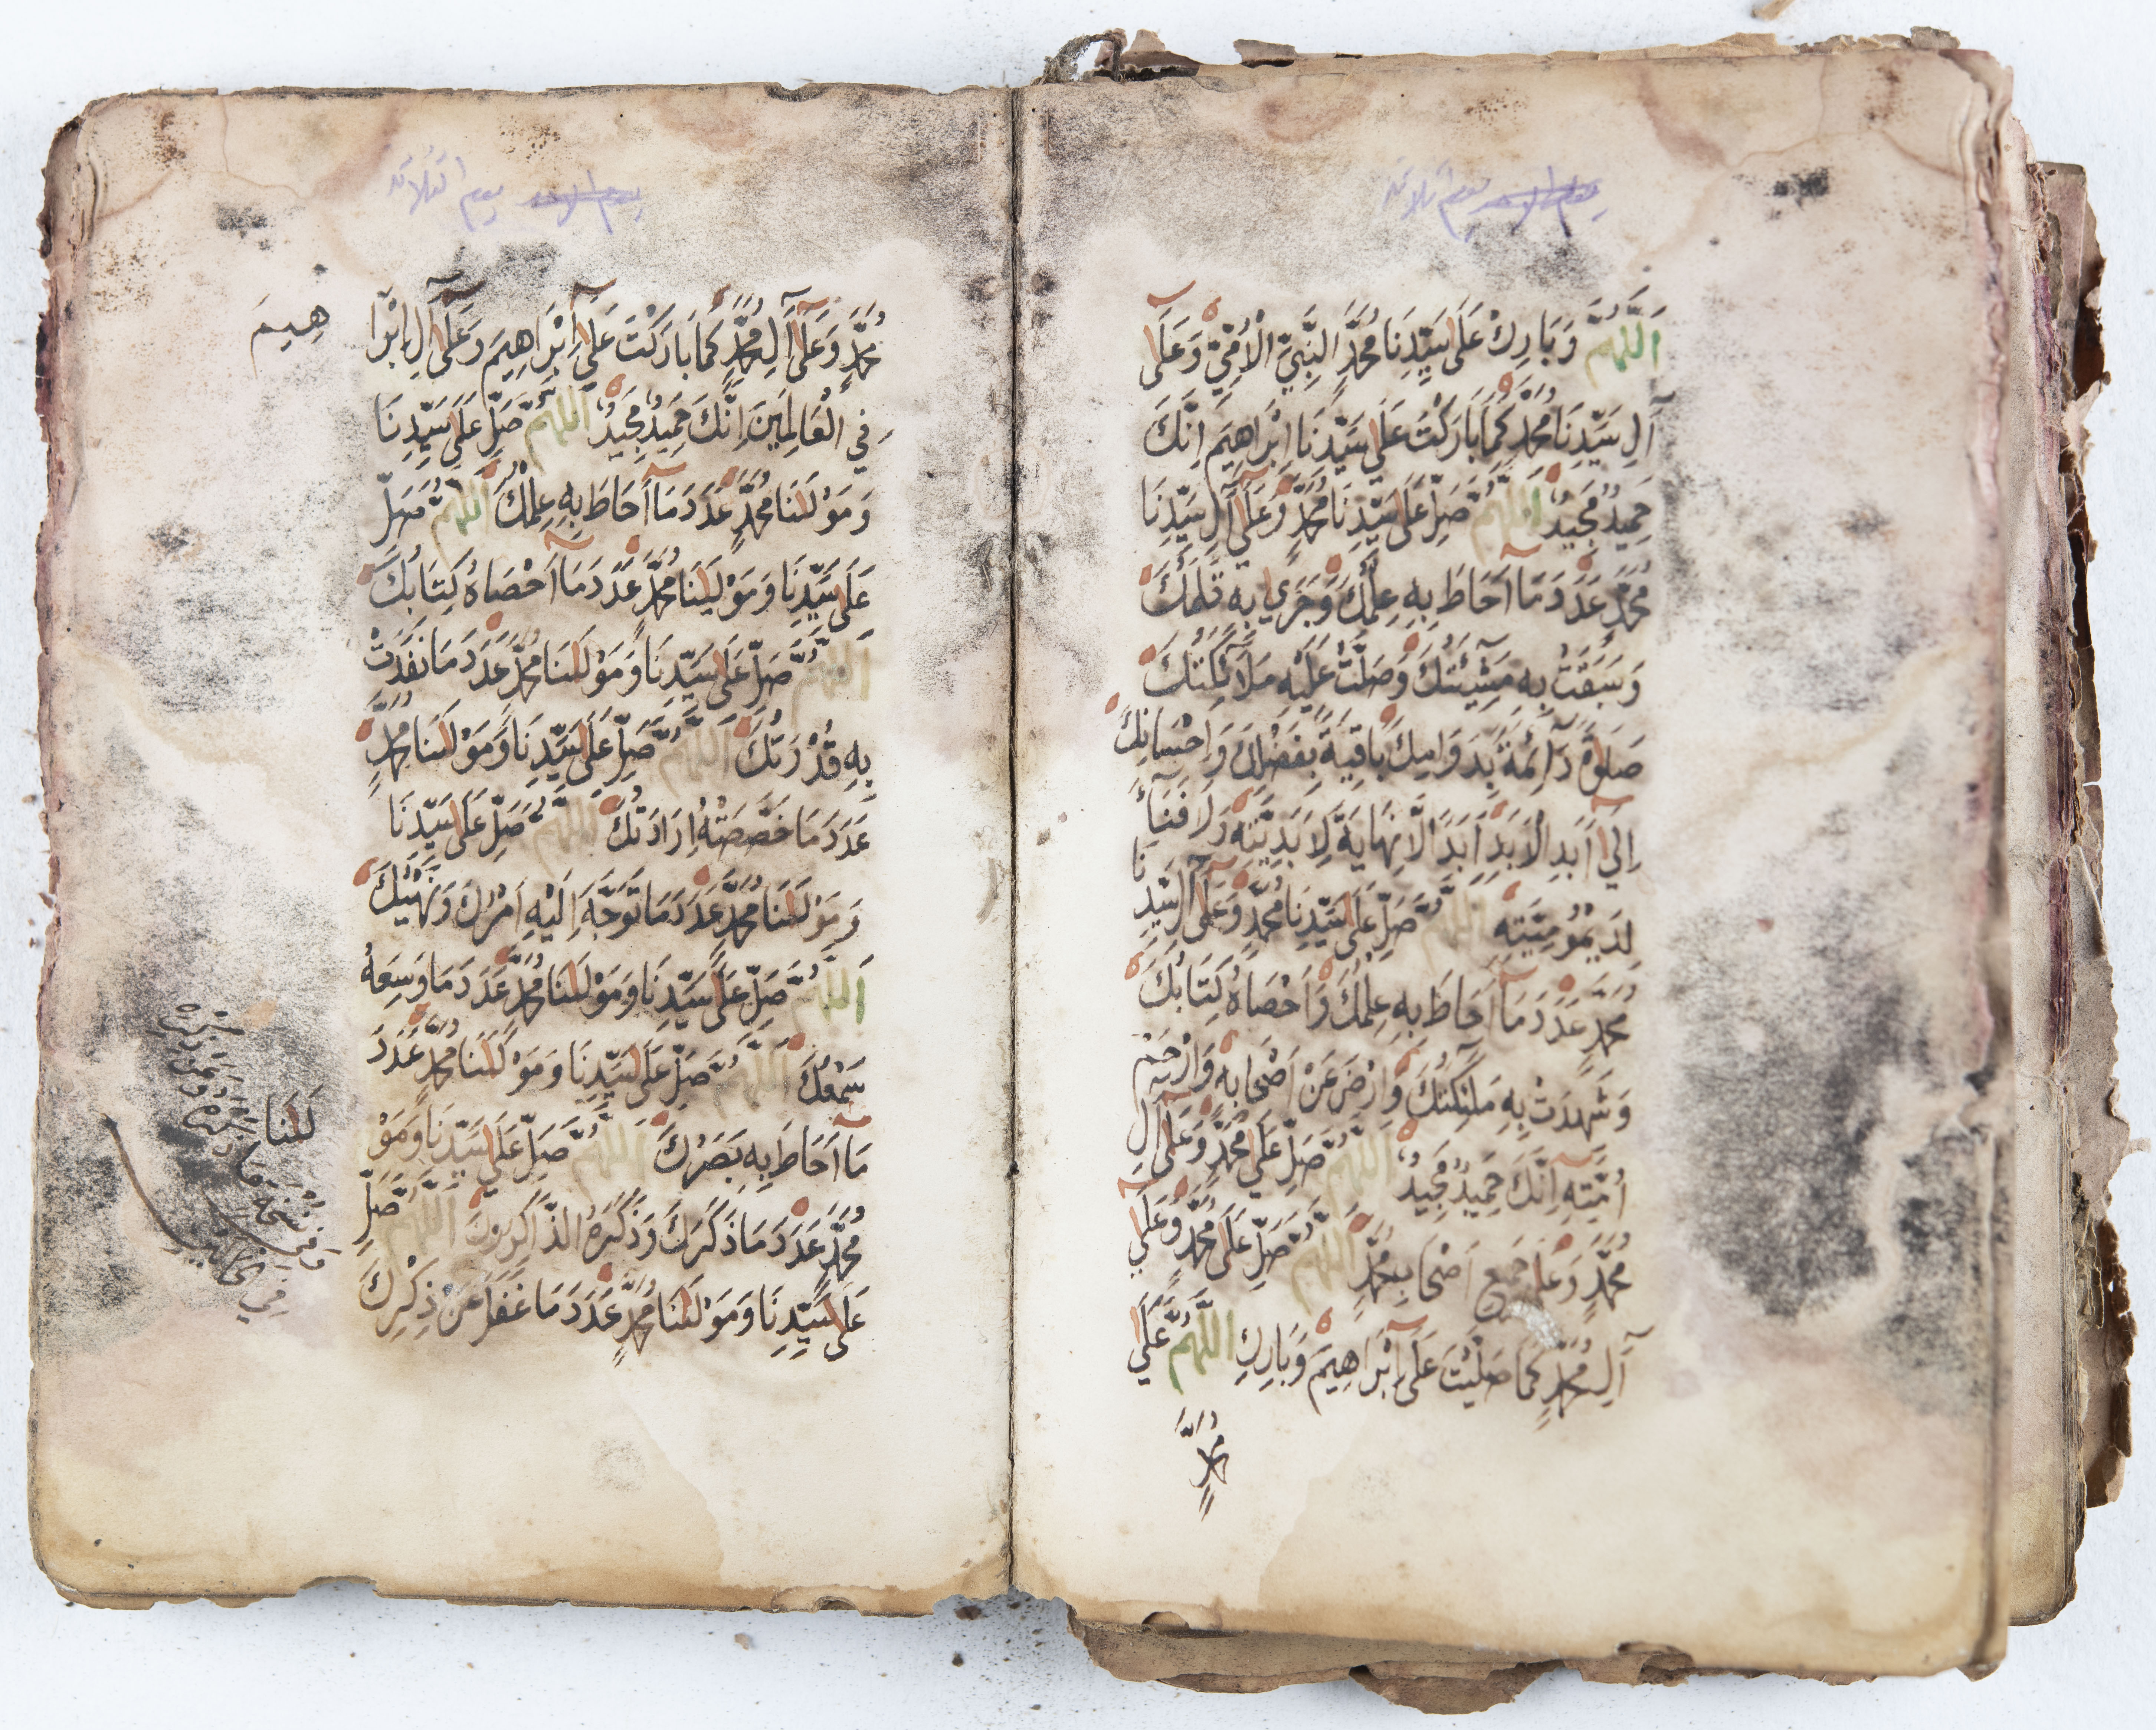 يوم الاحد يوم ثلاثه
اَللّٰهُمَّ وَبَارِكْ عَلَى سَيِّدِنَا مُحَمَّدٍ النَّبِيِّ الْاُمِّيِّ وَعَلَى
آلِ سَيِّدِنَا مُحَمَّدٍ كَمَا بَارَكْتَ عَلَى سَيِّدِنَا اِبْرَاهِيمَ اِنَّكَ
حَمِيدٌ مَجِيدٌ اَللّٰهُمَّ صَلِّ عَلَى سَيِّدِنَا مُحَمَّدٍ وَعَلَى آلِ سَيِّدِنَا
مُحَمَّدٍ عَدَدَ مَا اَحَاطَ بِهِ عِلْمُكَ وَجَرَى بِهِ قَلَمُكَ
وَسَبَقَتْ بِهِ مَشِيئَتُكَ وَصَلَّتْ عَلَيْهِ مَلَائِكَتُكَ
صَلٰوةً دَآئِمَةً بِدَوَامِكَ بَاقِيَةً بِفَضْلِكَ وَاِحْسَانِكَ
اِلَى اَبَدِ الْاَبَدِ اَبَدًا لَا نِهَايَةَ لِاَبَدِيَّتِهِ وَلَا فَنَاءَ
لِدَيْمُومِيَّتِهِ اَللّٰهُمَّ صَلِّ عَلَى سَيِّدِنَا مُحَمَّدٍ وَعَلَى آلِ سَيِّدِنَا
مُحَمَّدٍ عَدَدَ مَا اَحَاطَ بِهِ عِلْمُكَ وَاَحْصَاهُ كِتَابُكَ
وَشَهِدَتْ بِهِ مَلٰئِكَتُكَ وَارْضَ عَنْ اَصْحَابِهِ وَارْحَمْ
اُمَّتَهُ اِنَّكَ حَمِيدٌ مَجِيدٌ اَللّٰهُمَّ صَلِّ عَلَى مُحَمَّدٍ وَعَلَى آلِ
مُحَمَّدٍ وَعَلَى جَمِيعِ اَصْحَابِ مُحَمَّدٍ اَللّٰهُمَّ صَلِّ عَلَى مُحَمَّدٍ وَعَلَى
آلِ مُحَمَّدٍ كَمَا صَلَّيْتَ عَلَى اِبْرَاهِيمَ وَبَارِكِ اللّٰهُمَّ عَلَى
مُحَمَّدٍ
يوم الاحد يوم اثلاثه
مُحَمَّدٍ وَعَلَى آلِ مُحَمَّدٍ كَمَا بَارَكْتَ عَلَى اِبْرَاهِيمَ وَعَلَى آلِ اِبْرَا
هِيمَ
فِي الْعَالَمِينَ اِنَّكَ حَمِيدٌ مَجِيدٌ اَللّٰهُمَّ صَلِّ عَلَى سَيِّدِنَا
وَمَوْلٰىنَا مُحَمَّدٍ عَدَدَ مَا اَحَاطَ بِهِ عِلْمُكَ اَللّٰهُمَّ صَلِّ
عَلَى سَيِّدِنَا وَمَوْلٰىنَا مُحَمَّدٍ عَدَدَ مَا اَحْصَاهُ كِتَابُكَ
اَللّٰهُمَّ صَلِّ عَلَى سَيِّدِنَا وَمَوْلٰىنَا مُحَمَّدٍ عَدَدَ مَا نَفَذَتْ
بِهِ قُدْرَتُكَ اَللّٰهُمَّ صَلِّ عَلَى سَيِّدِنَا وَمَوْلٰىنَا مُحَمَّدٍ
عَدَدَ مَا خَصَّصَتْهُ اِرَادَتُكَ اَللّٰهُمَّ صَلِّ عَلَى سَيِّدِنَا
وَمَوْلٰىنَا مُحَمَّدٍ عَدَدَ مَا تَوَجَّهَ اِلَيْهِ اَمْرُكَ وَنَهْيُكَ
اَللّٰهُمَّ صَلِّ عَلَى سَيِّدِنَا وَمَوْلٰىنَا مُحَمَّدٍ عَدَدَ مَا وَسِعَهُ
سَمْعُكَ اَللّٰهُمَّ صَلِّ عَلَى سَيِّدِنَا وَمَوْلٰىنَا مُحَمَّدٍ عَدَدَ
مَا اَحَاطَ بِهِ بَصَرُكَ اَللّٰهُمَّ صَلِّ عَلَى سَيِّدِنَا وَمَوْ
لٰىنَا
مُحَمَّدٍ عَدَدَ مَا ذَكَرَكَ وَذَكَرَهُ الذَّاكِرُونَ اَللّٰهُمَّ صَلِّ
عَلَى سَيِّدِنَا وَمَوْلٰىنَا مُحَمَّدٍ عَدَدَ مَا غَفَلَ عَنْ ذِكْرِكَ